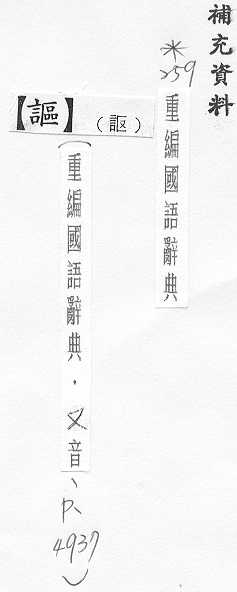 補充資料
*259
重編國語辭典
【謳】(䛩)
(重編國語辭典,又音、P.4937)